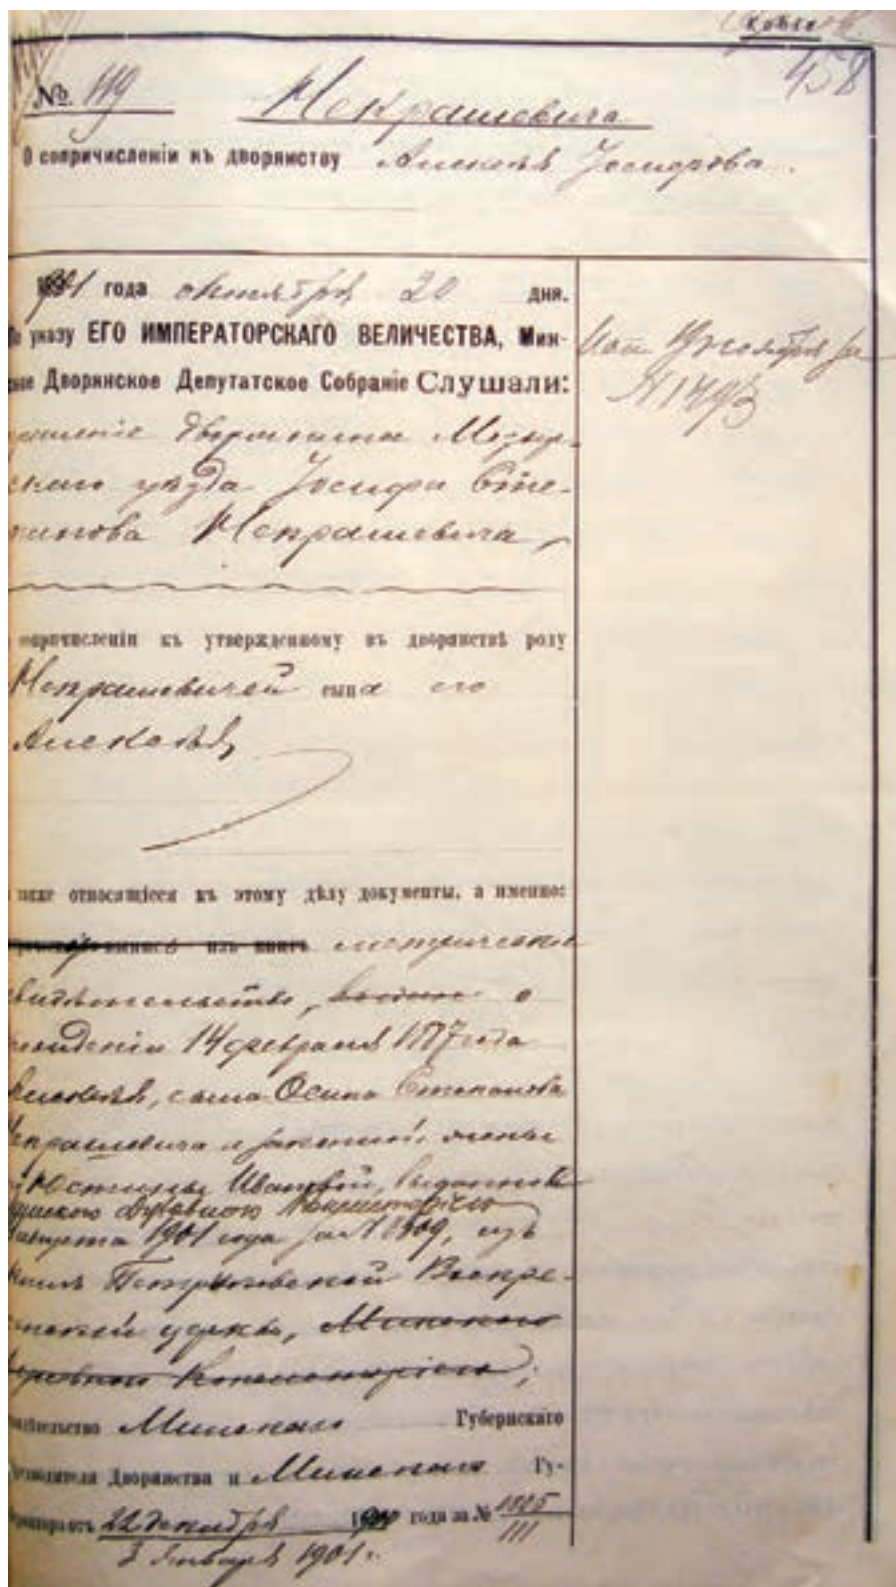 копія
458
№ 119 Некрашевича
О сопричисленіи къ дворянству Алексѣя Іосифова.
1901 года октября 20 дня.
По указу ЕГО ИМПЕРАТОРСКАГО ВЕЛИЧЕСТВА, Мин-
ское Дворянское Депутатское Собраніе Слушали:
прошеніе дворянина Мозыр-
скаго уѣзда Іосифа Сте-
панова Некрашевича
сопричисленіи къ утвержденному въ дворянствѣ роду
Некрашевичей сына его
Алексѣя,
также относящіеся къ этому дѣлу документы, а именно:
выписѣ изъ книгъ метрическое
свидѣтельство, о
рожденіи 14 февраля 1887 года
Алексѣя, сына Осипа Степанова
Некрашевича и законной жены
Юстины Ивановой, выданное
Минскою Духовною Консисторіею
августа 1901 года за № 1809, изъ
Петриковской Воскре-
сенской церкви, Минскою
Духовною Консисторіею;
свидѣтельство Минскаго Губернскаго
Предводителя Дворянства и Минскаго Гу-
бернатора отъ 22 декабря 1900 года за № 1825
111
3 января 1901 г.